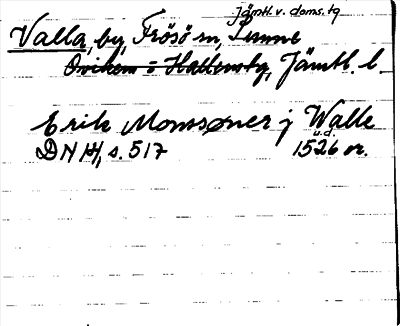 Jämtl. v. doms. tg
Valla, by, Frösö sn, Sunne
Oviken o Hallens tg, Jämtl. l.
Erik Monssøner j Walle
u.d.
DN 14, s. 517 1526 or.